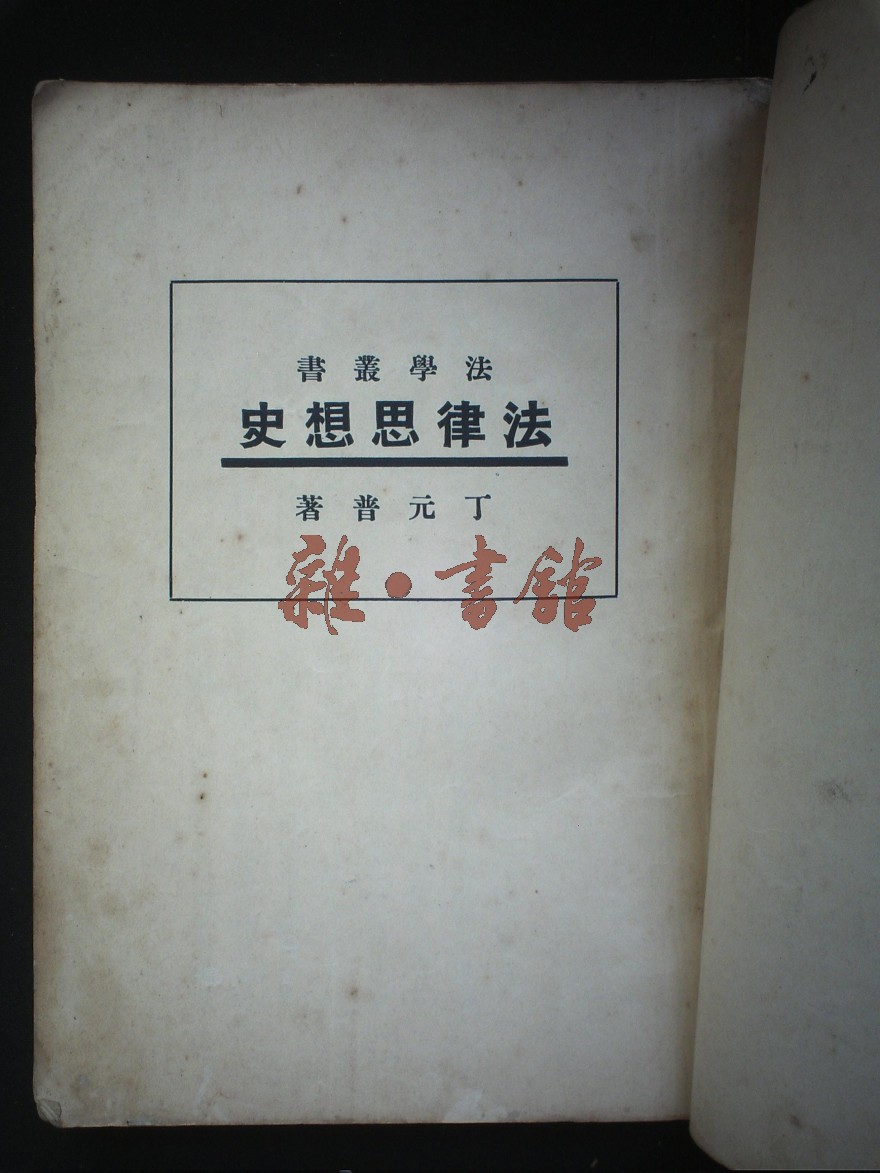 法學叢書
法律思想史
丁元普著
雜·書館